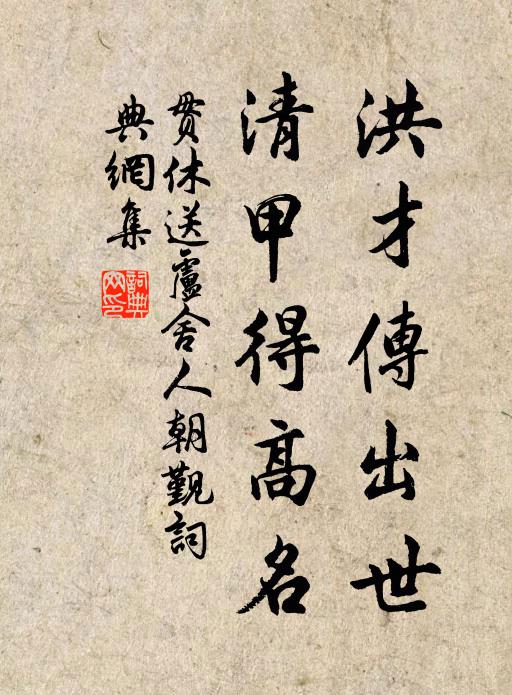 洪才傳出世
清甲得高名
貫休送盧舍人朝覲詞
典網集
詞典網印